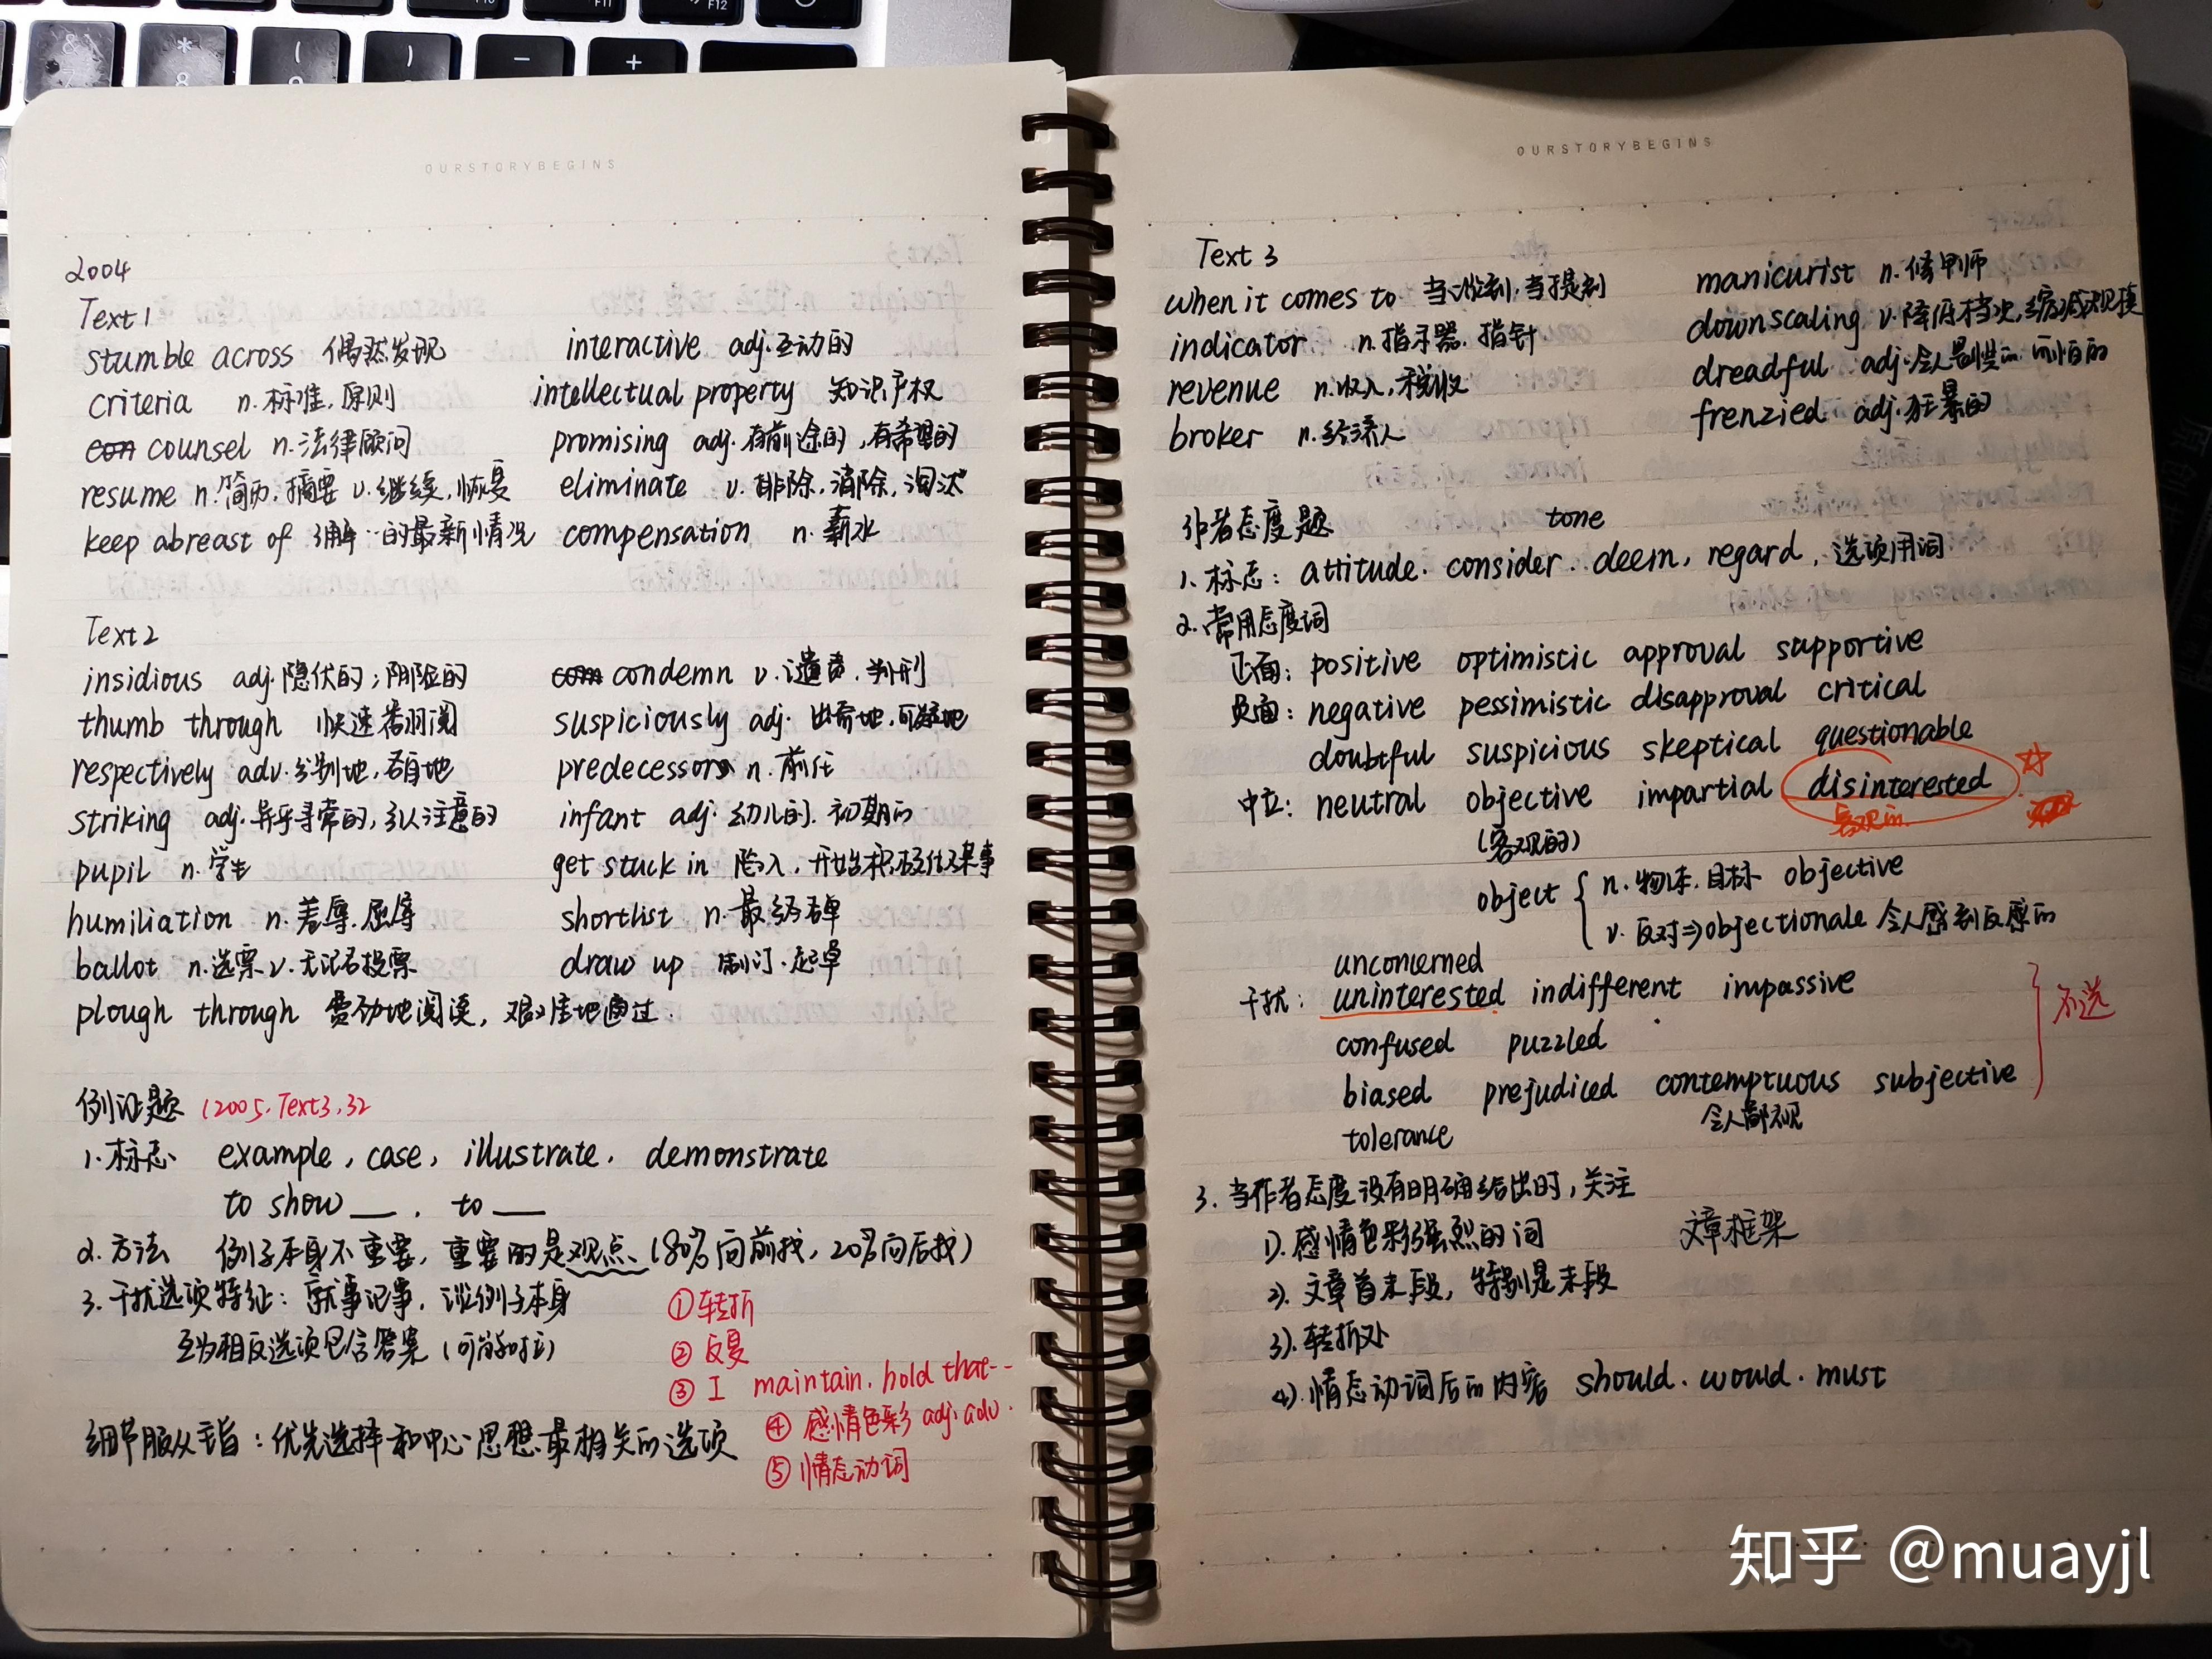 OURSTORYBEGINS
2004
Text 1
stumble across 偶然发现
criteria n.标准,原则
counsel n.法律顾问
resume n.简历,摘要 v.继续,恢复
keep abreast of 了解…的最新情况
interactive adj.互动的
intellectual property 知识产权
promising adj.有前途的,有希望的
eliminate v.排除,消除,淘汰
compensation n.薪水
Text 2
insidious adj.隐伏的;阴险的
thumb through 快速翻阅
respectively adv.分别地,各自地
striking adj.异乎寻常的,引人注意的
pupil n.学生
humiliation n.羞辱.屈辱
ballot n.选票 v.无记名投票
plough through 费劲地阅读,艰难地通过.
condemn v.谴责.判刑
suspiciously adj. 出奇地,可疑地
predecessors n.前任
infant adj.幼儿的.初期的
get stuck in 陷入.开始积极做某事
shortlist n.最终名单
draw up 制订.起草
例证题 (2005.Text3.32
1.标志 example, case, illustrate. demonstrate
to show __ . to __
2.方法 例子本身不重要,重要的是观点.(80%向前找,20%向后找)
3.干扰选项特征:就事论事.谈例子本身
互为相反选项包含答案
①转折
②反复
③I maintain.hold that--
④感情色彩 adj.adv.
⑤情态动词
细节服从主旨:优先选择和中心思想最相关的选项
OURSTORYBEGINS
Text 3
when it comes to 当谈到,当提到
indicator n.指示器.指针
revenue n.收入,税收
broker n.经济人
manicurist n.修甲师
downscaling v.降低档次,缩减规模
dreadful adj.令人恐惧的.可怕的
frenzied adj.狂暴的
作者态度题 tone
1.标志: attitude. consider. deem, regard, 选项用词
2.常用态度词
正面: positive optimistic approval supportive
负面: negative pessimistic disapproval critical
doubtful suspicious skeptical questionable
中立: neutral objective impartial disinterested
(客观的) 客观的
object { n.物体.目标 objective
v.反对⇒objectionale 令人感到反感的
unconcerned
干扰: uninterested indifferent impassive
confused puzzled
biased prejudiced contemptuous subjective
令人鄙视
tolerance
不选
3.当作者态度没有明确给出时,关注
1).感情色彩强烈的词 文章框架
2).文章首末段,特别是末段
3).转折处
4).情态动词后的内容 should.would.must
知乎 @muayjl